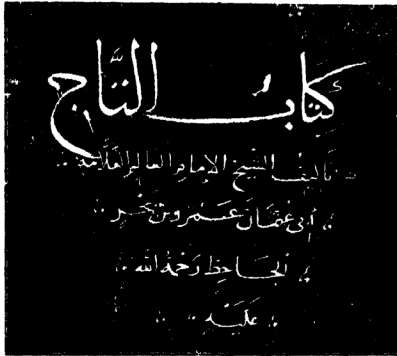 كتاب التاج
تاليف الشيخ الإمام العالم العلامة
أبي عثمان عمرو بن بحر
الجاحظ رحمة الله
عليه